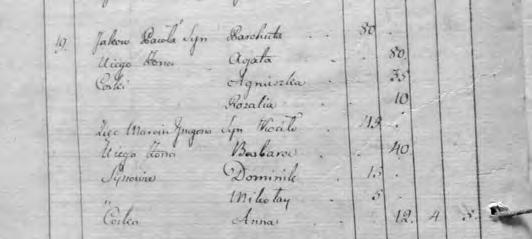 19. Jakow Pawła Syn Parchuta . . 80 .
Uiego Żona Agata . . . 80.
Corki Agnuszka . . . 35
Rozalia . . . 10
Zięc Marcin Syn . 42 .
Uiego Żona Barbara . . 40
Synowie Dominik . 15 .
„ Mikołay . 5 .
Corka Anna . . 12. 4 5.